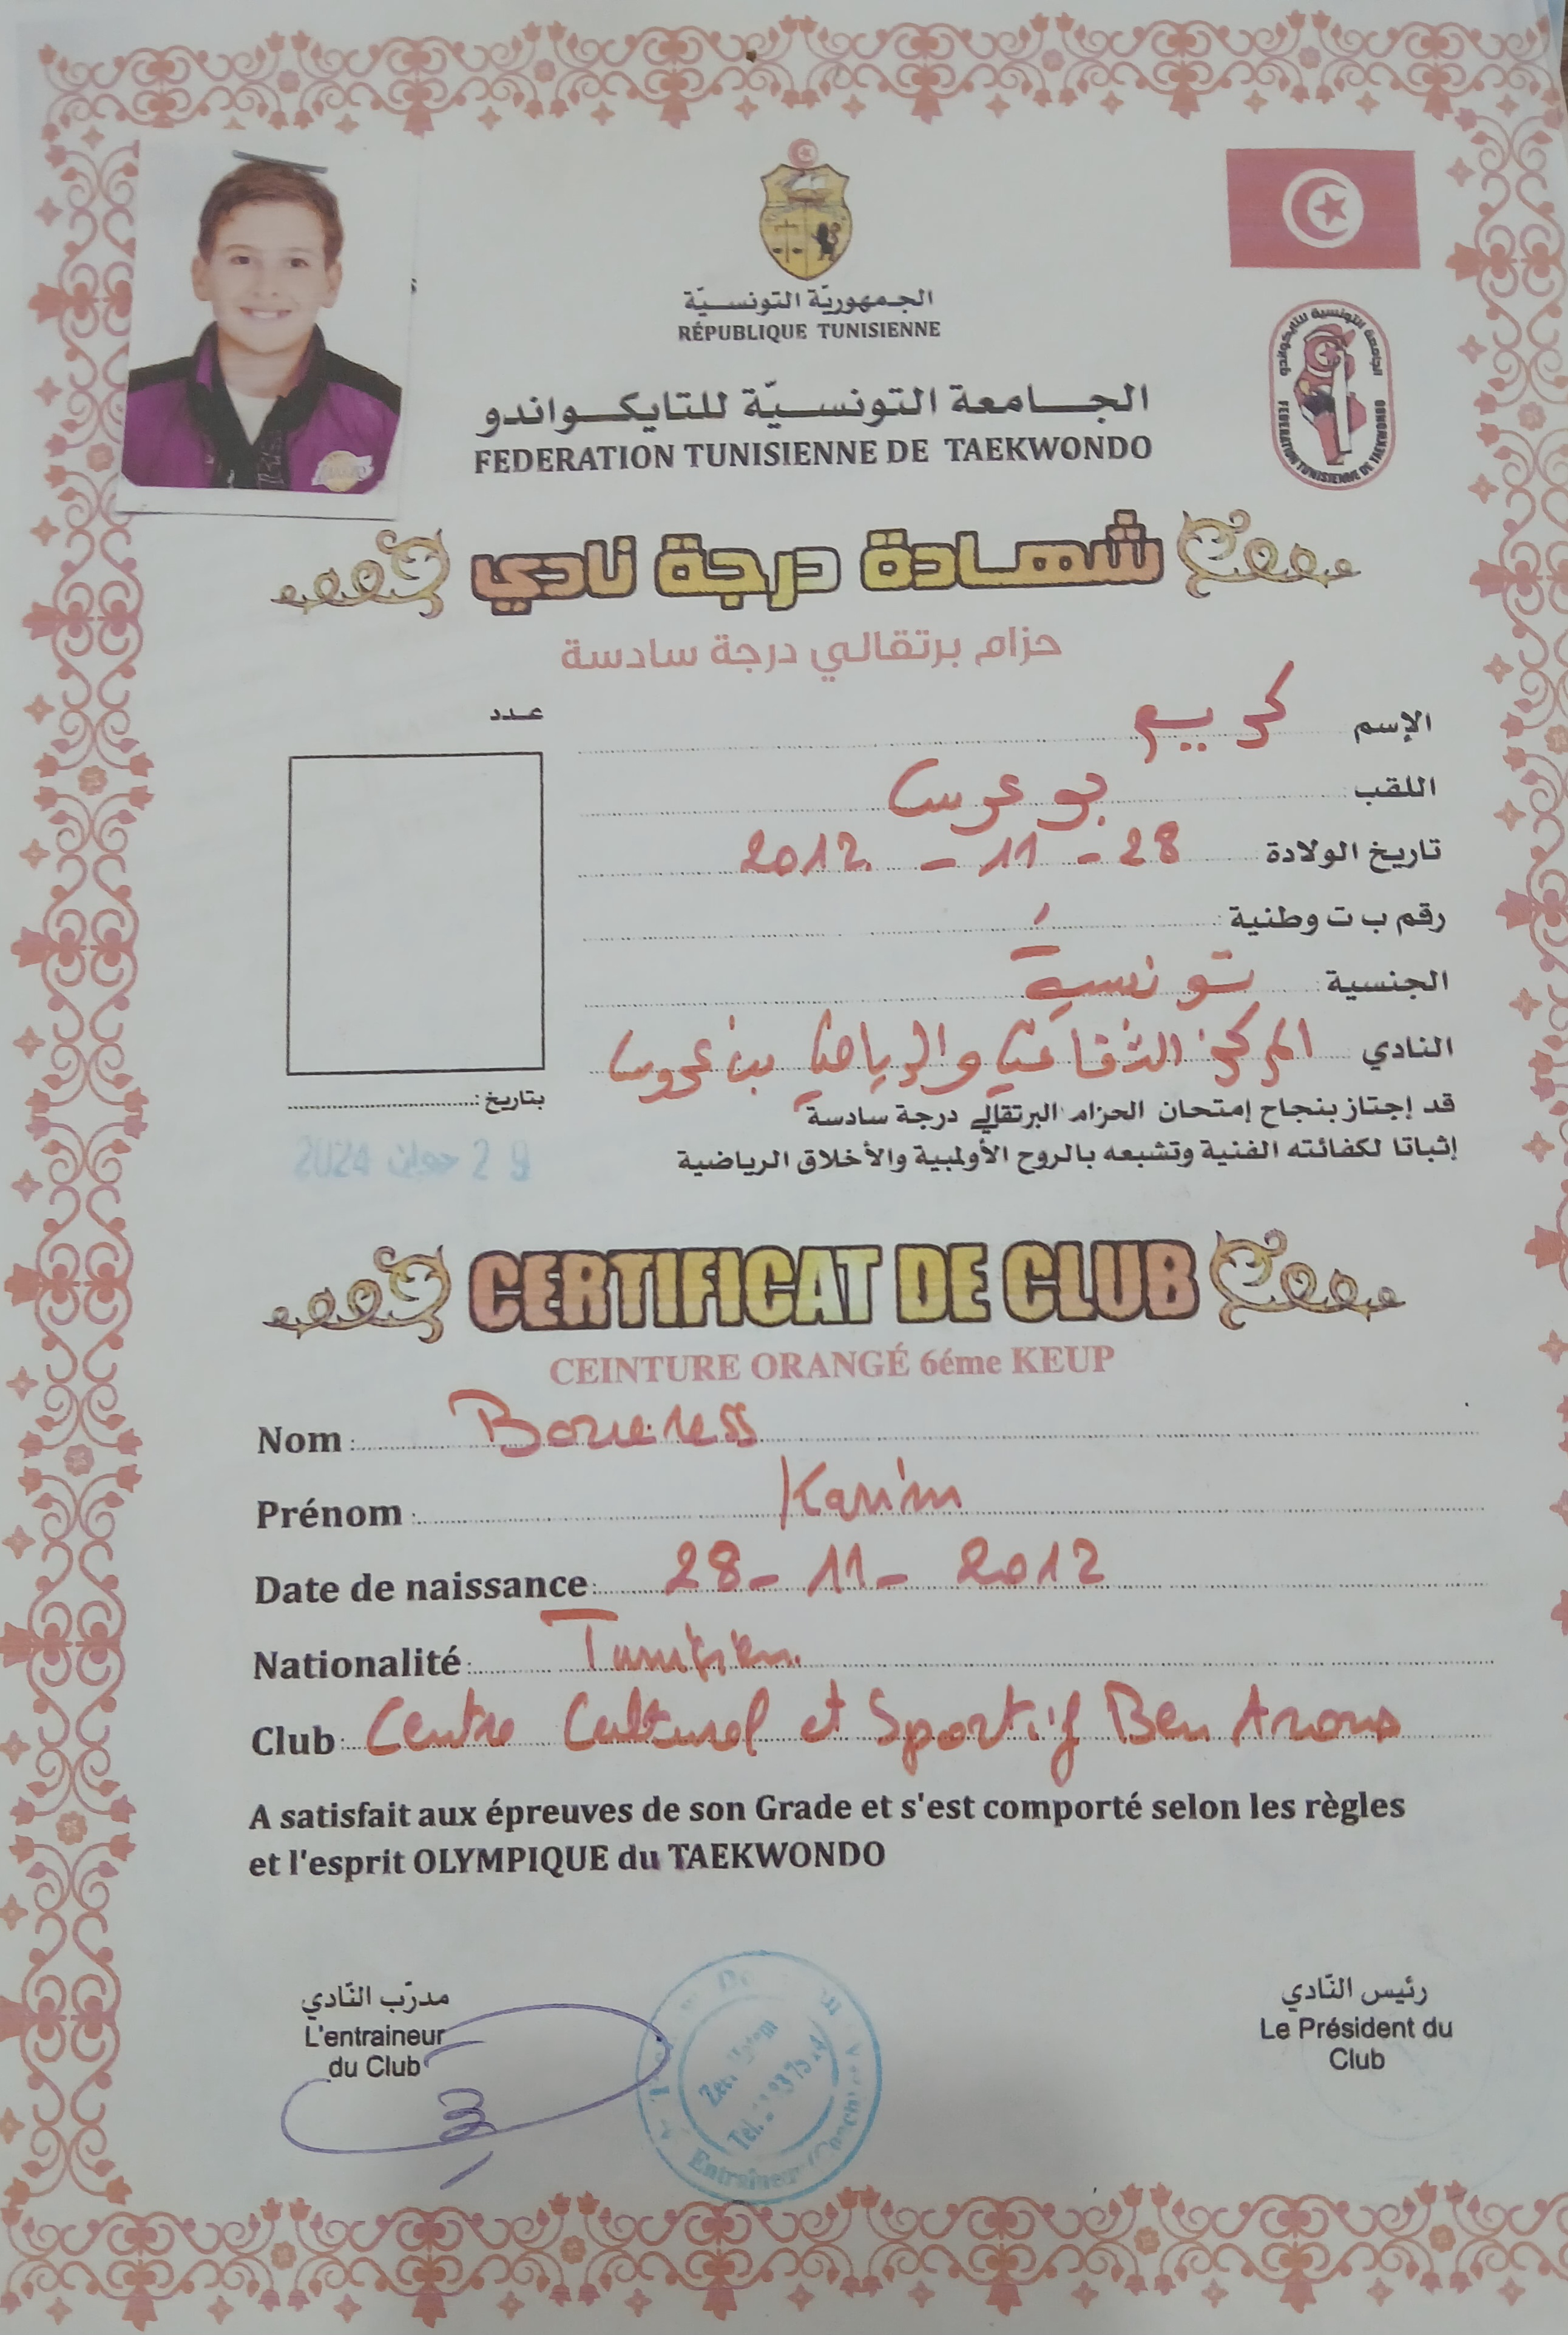 الجمهوريّة التونسيّة
RÉPUBLIQUE TUNISIENNE
الجامعة التونسيّة للتايكواندو
FEDERATION TUNISIENNE DE TAEKWONDO
الجامعة التونسية للتايكواندو
FEDERATION TUNISIENNE DE TAEKWONDO
شهادة درجة نادي
حزام برتقالي درجة سادسة
عدد
الإسم كريم
اللقب بوعرسة
تاريخ الولادة 28 - 11 - 2012
رقم ب ت وطنية :
الجنسية : تونسية
النادي المركز الثقافي والرياضي بن عروس
بتاريخ :
29 جوان 2024
قد إجتاز بنجاح إمتحان الحزام البرتقالي درجة سادسة
إثباتا لكفائته الفنية وتشبعه بالروح الأولمبية والأخلاق الرياضية
CERTIFICAT DE CLUB
CEINTURE ORANGÉ 6éme KEUP
Nom :
Prénom : Karim
Date de naissance : 28 - 11 - 2012
Nationalité : Tunisien
Club : Centre Culturel et Sportif Ben Arous
A satisfait aux épreuves de son Grade et s'est comporté selon les règles
et l'esprit OLYMPIQUE du TAEKWONDO
مدرّب النّادي
L'entraineur
du Club
Entraineur
Tél.
رئيس النّادي
Le Président du
Club